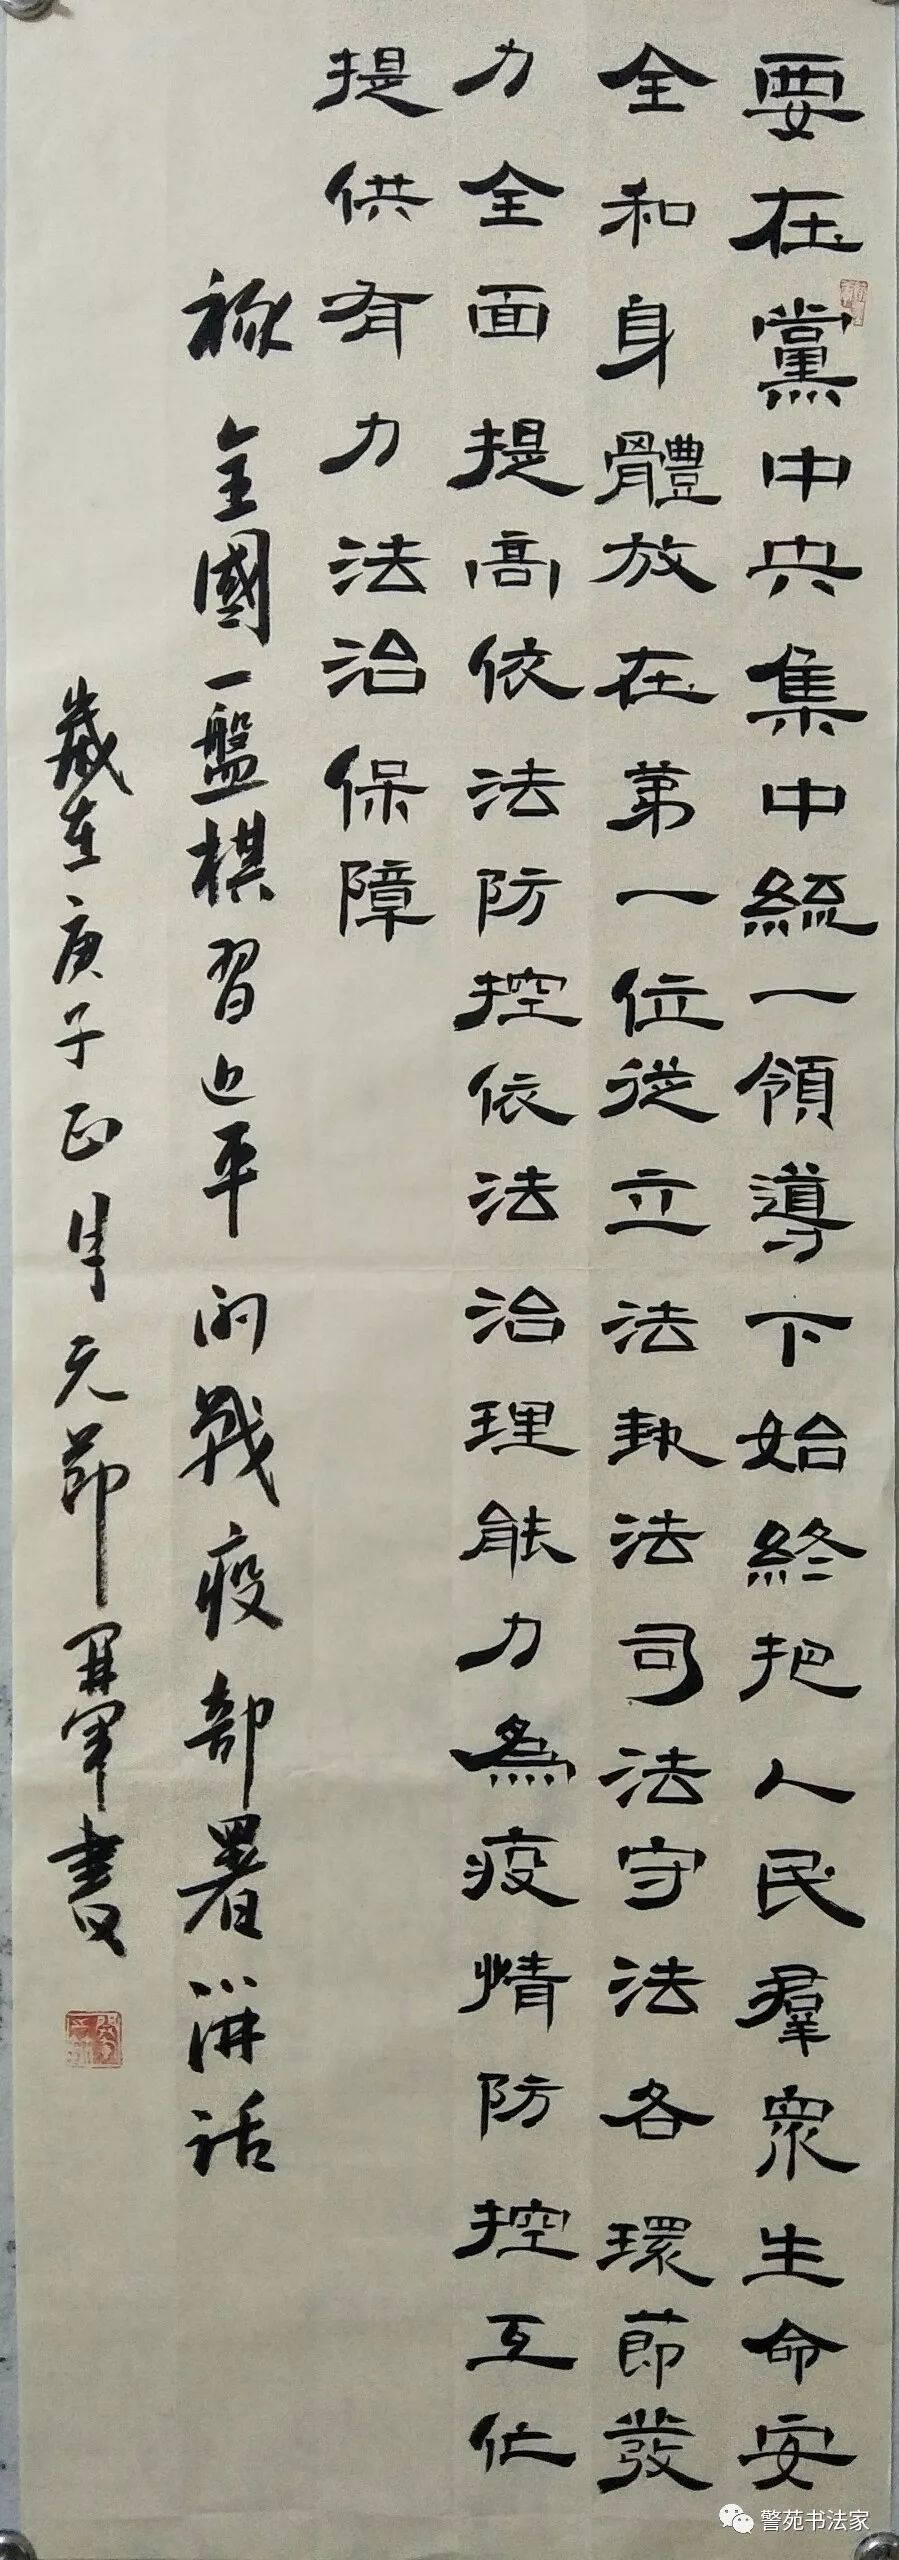 要在黨中央集中統一領導下始終把人民羣眾生命安
全和身體放在第一位從立法執法司法守法各環節發
力全面提高依法防控依法治理能力為疫情防控工作
提供有力法治保障
全國一盤棋習近平的戰疫部署講話
歲在庚子正月元節軍書
警苑书法家